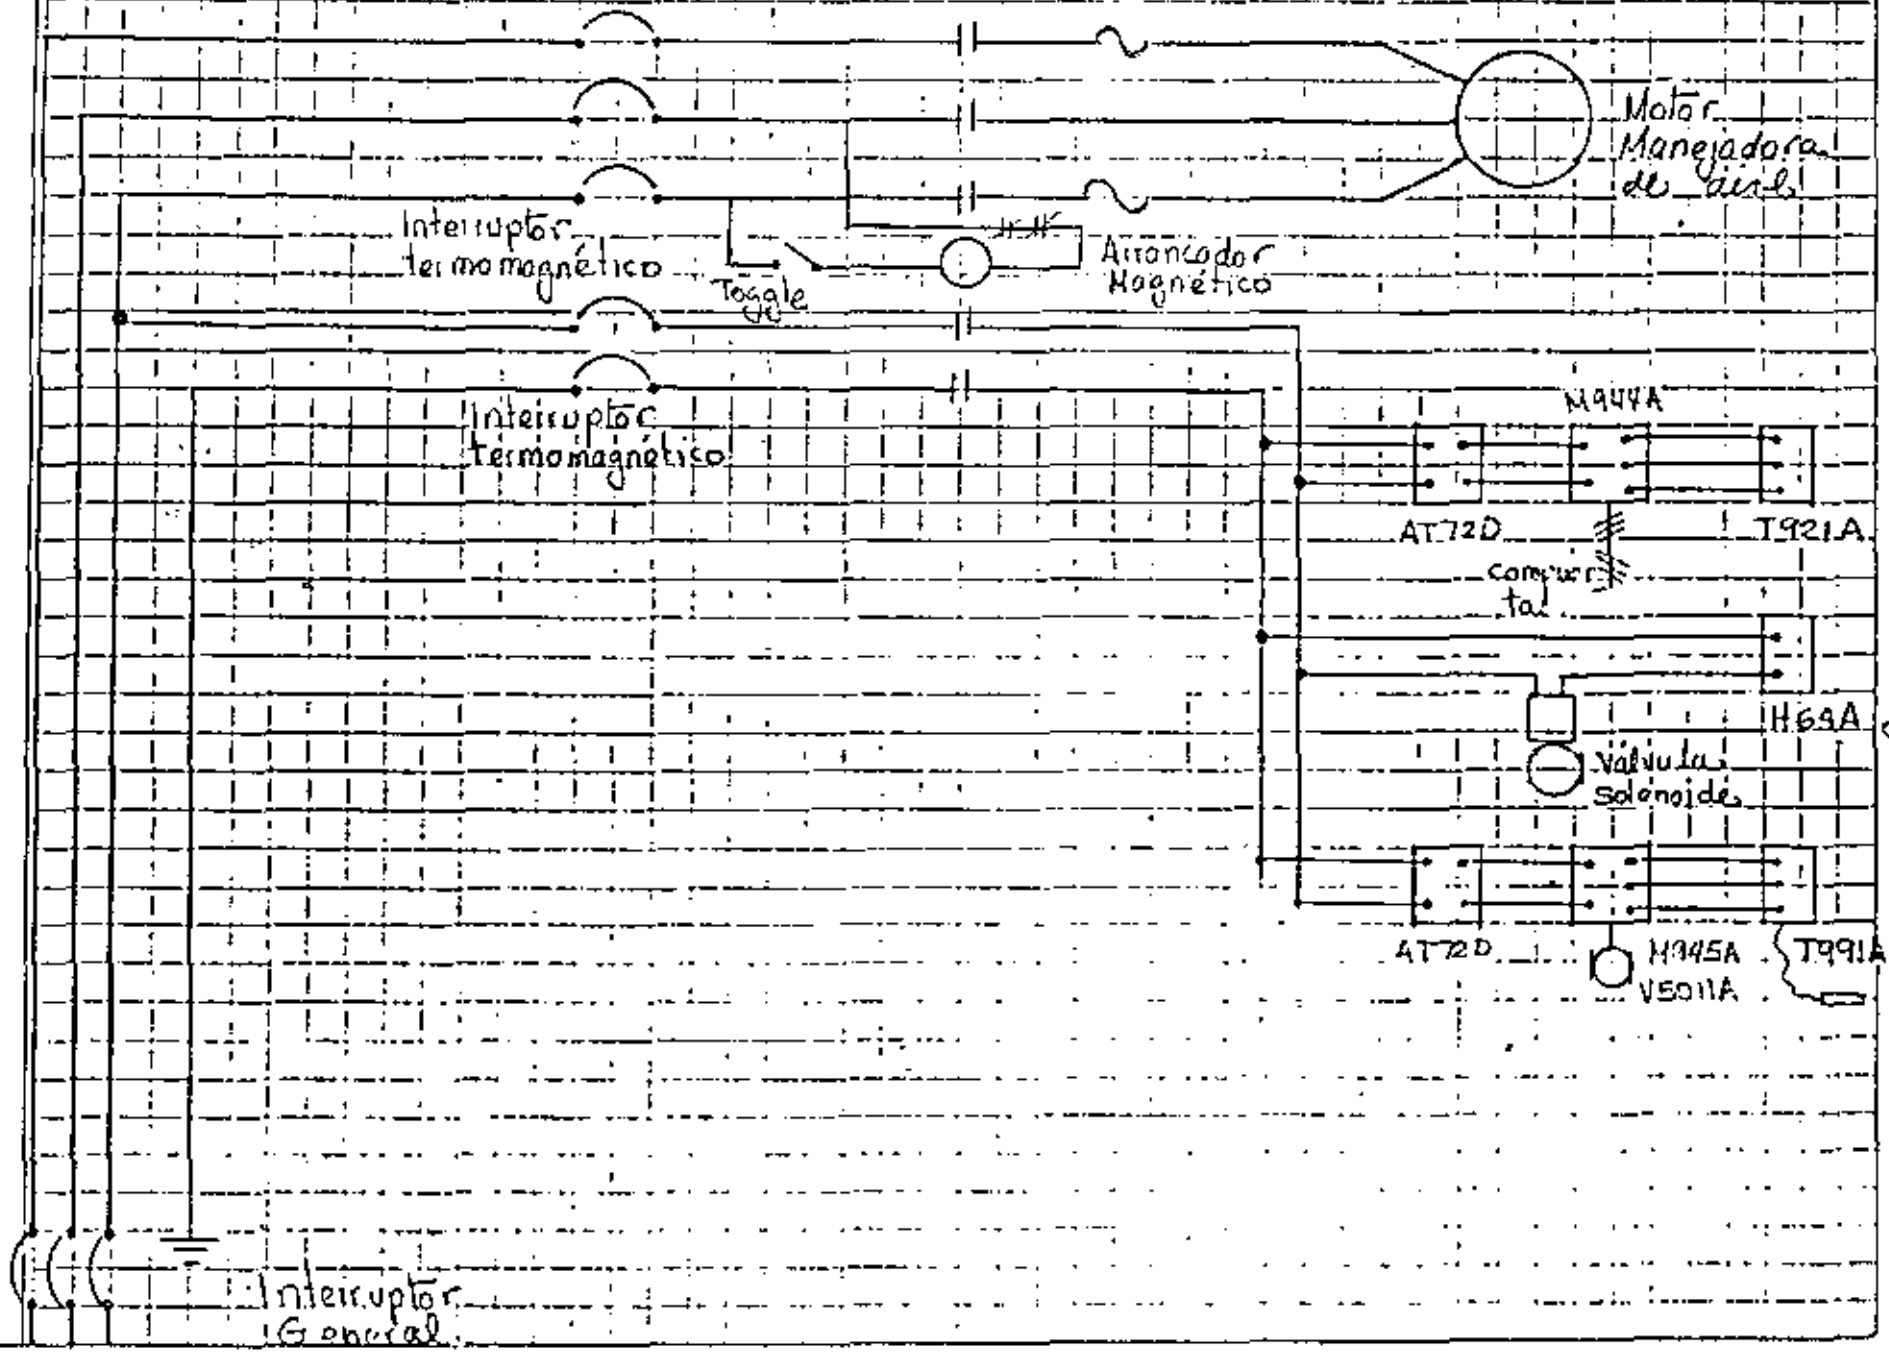 Motor
Manejadora
de aire
Interruptor
termomagnético
Toggle
Arrancador
Magnético
Interruptor
termomagnético
M944A
AT72D
T921A
compuer
ta
H69A
Válvula
solenoide
AT72D
M945A
T991A
V5011A
Interruptor
General